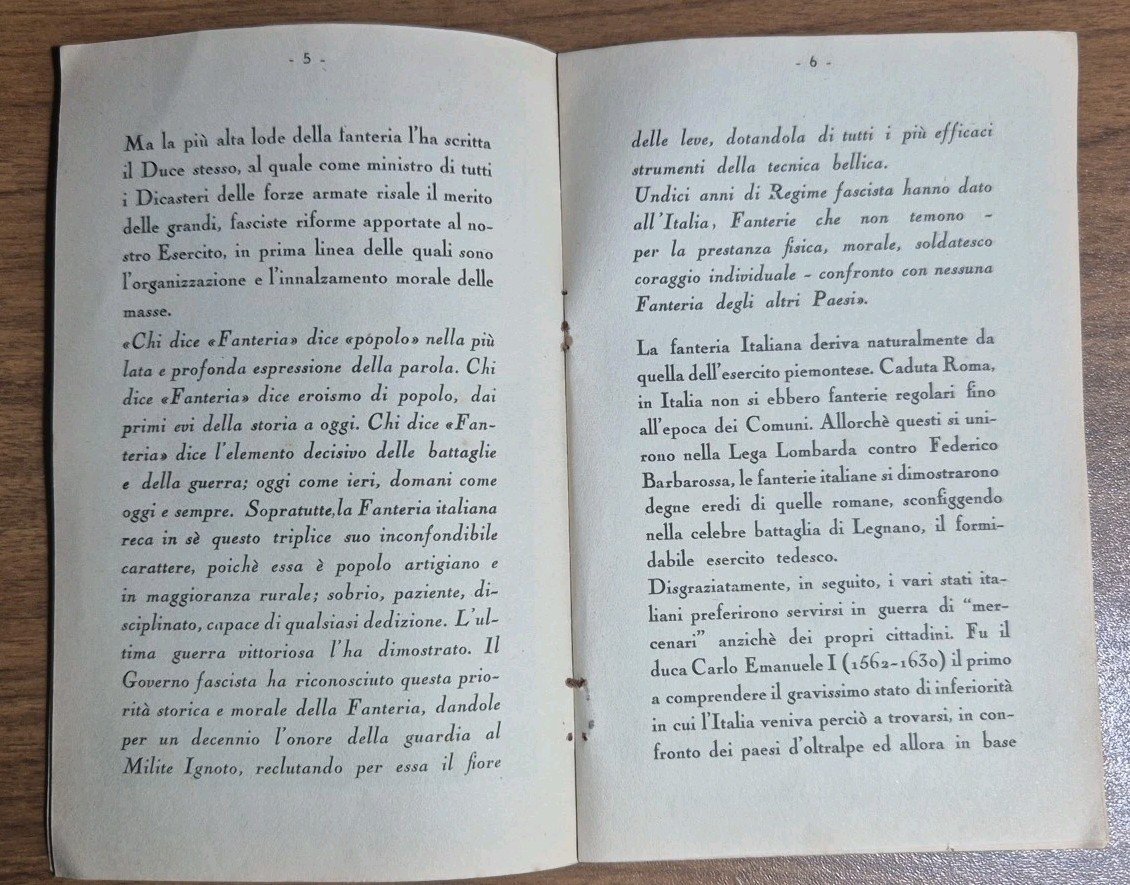 - 5 -
Ma la più alta lode della fanteria l'ha scritta
il Duce stesso, al quale come ministro di tutti
i Dicasteri delle forze armate risale il merito
delle grandi, fasciste riforme apportate al no-
stro Esercito, in prima linea delle quali sono
l'organizzazione e l'innalzamento morale delle
masse.
«Chi dice «Fanteria» dice «popolo» nella più
lata e profonda espressione della parola. Chi
dice «Fanteria» dice eroismo di popolo, dai
primi evi della storia a oggi. Chi dice «Fan-
teria» dice l'elemento decisivo delle battaglie
e della guerra; oggi come ieri, domani come
oggi e sempre. Sopratutte,la Fanteria italiana
reca in sè questo triplice suo inconfondibile
carattere, poichè essa è popolo artigiano e
in maggioranza rurale; sobrio, paziente, di-
sciplinato, capace di qualsiasi dedizione. L'ul-
tima guerra vittoriosa l'ha dimostrato. Il
Governo fascista ha riconosciuto questa prio-
rità storica e morale della Fanteria, dandole
per un decennio l'onore della guardia al
Milite Ignoto, reclutando per essa il fiore
- 6 -
delle leve, dotandola di tutti i più efficaci
strumenti della tecnica bellica.
Undici anni di Regime fascista hanno dato
all'Italia, Fanterie che non temono -
per la prestanza fisica, morale, soldatesco
coraggio individuale - confronto con nessuna
Fanteria degli altri Paesi».
La fanteria Italiana deriva naturalmente da
quella dell'esercito piemontese. Caduta Roma,
in Italia non si ebbero fanterie regolari fino
all'epoca dei Comuni. Allorchè questi si uni-
rono nella Lega Lombarda contro Federico
Barbarossa, le fanterie italiane si dimostrarono
degne eredi di quelle romane, sconfiggendo
nella celebre battaglia di Legnano, il formi-
dabile esercito tedesco.
Disgraziatamente, in seguito, i vari stati ita-
liani preferirono servirsi in guerra di "mer-
cenari" anzichè dei propri cittadini. Fu il
duca Carlo Emanuele I (1562-1630) il primo
a comprendere il gravissimo stato di inferiorità
in cui l'Italia veniva perciò a trovarsi, in con-
fronto dei paesi d'oltralpe ed allora in base